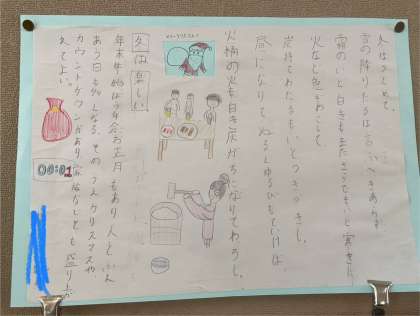 冬はつとめて。
雪の降りたるは言ふべきにもあらず
霜のいと白きもまたさらでもいと寒きに
火など急ぎおこして
炭持てわたるもいとつきづきし。
昼になりてぬるくゆるびもていけば、
火桶の火も白き灰がちになりてわろし。
冬は楽しい
年末年始は お正月もあり 人と
あう日も多くなる。そのうえクリスマスや
カウントダウンがあり家族などでも盛り
冬でよい。
00:01